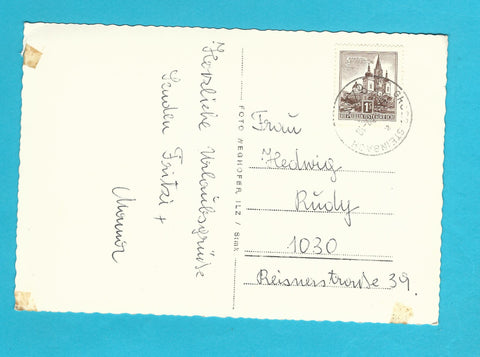 Herzliche Urlaubsgrüße
Senden Fritzi +
FOTO NEGHOFER, ILZ / Stmk.
REPUBLIK ÖSTERREICH
Frau
Hedwig
Rudy
1030
Reisnerstraße 39.